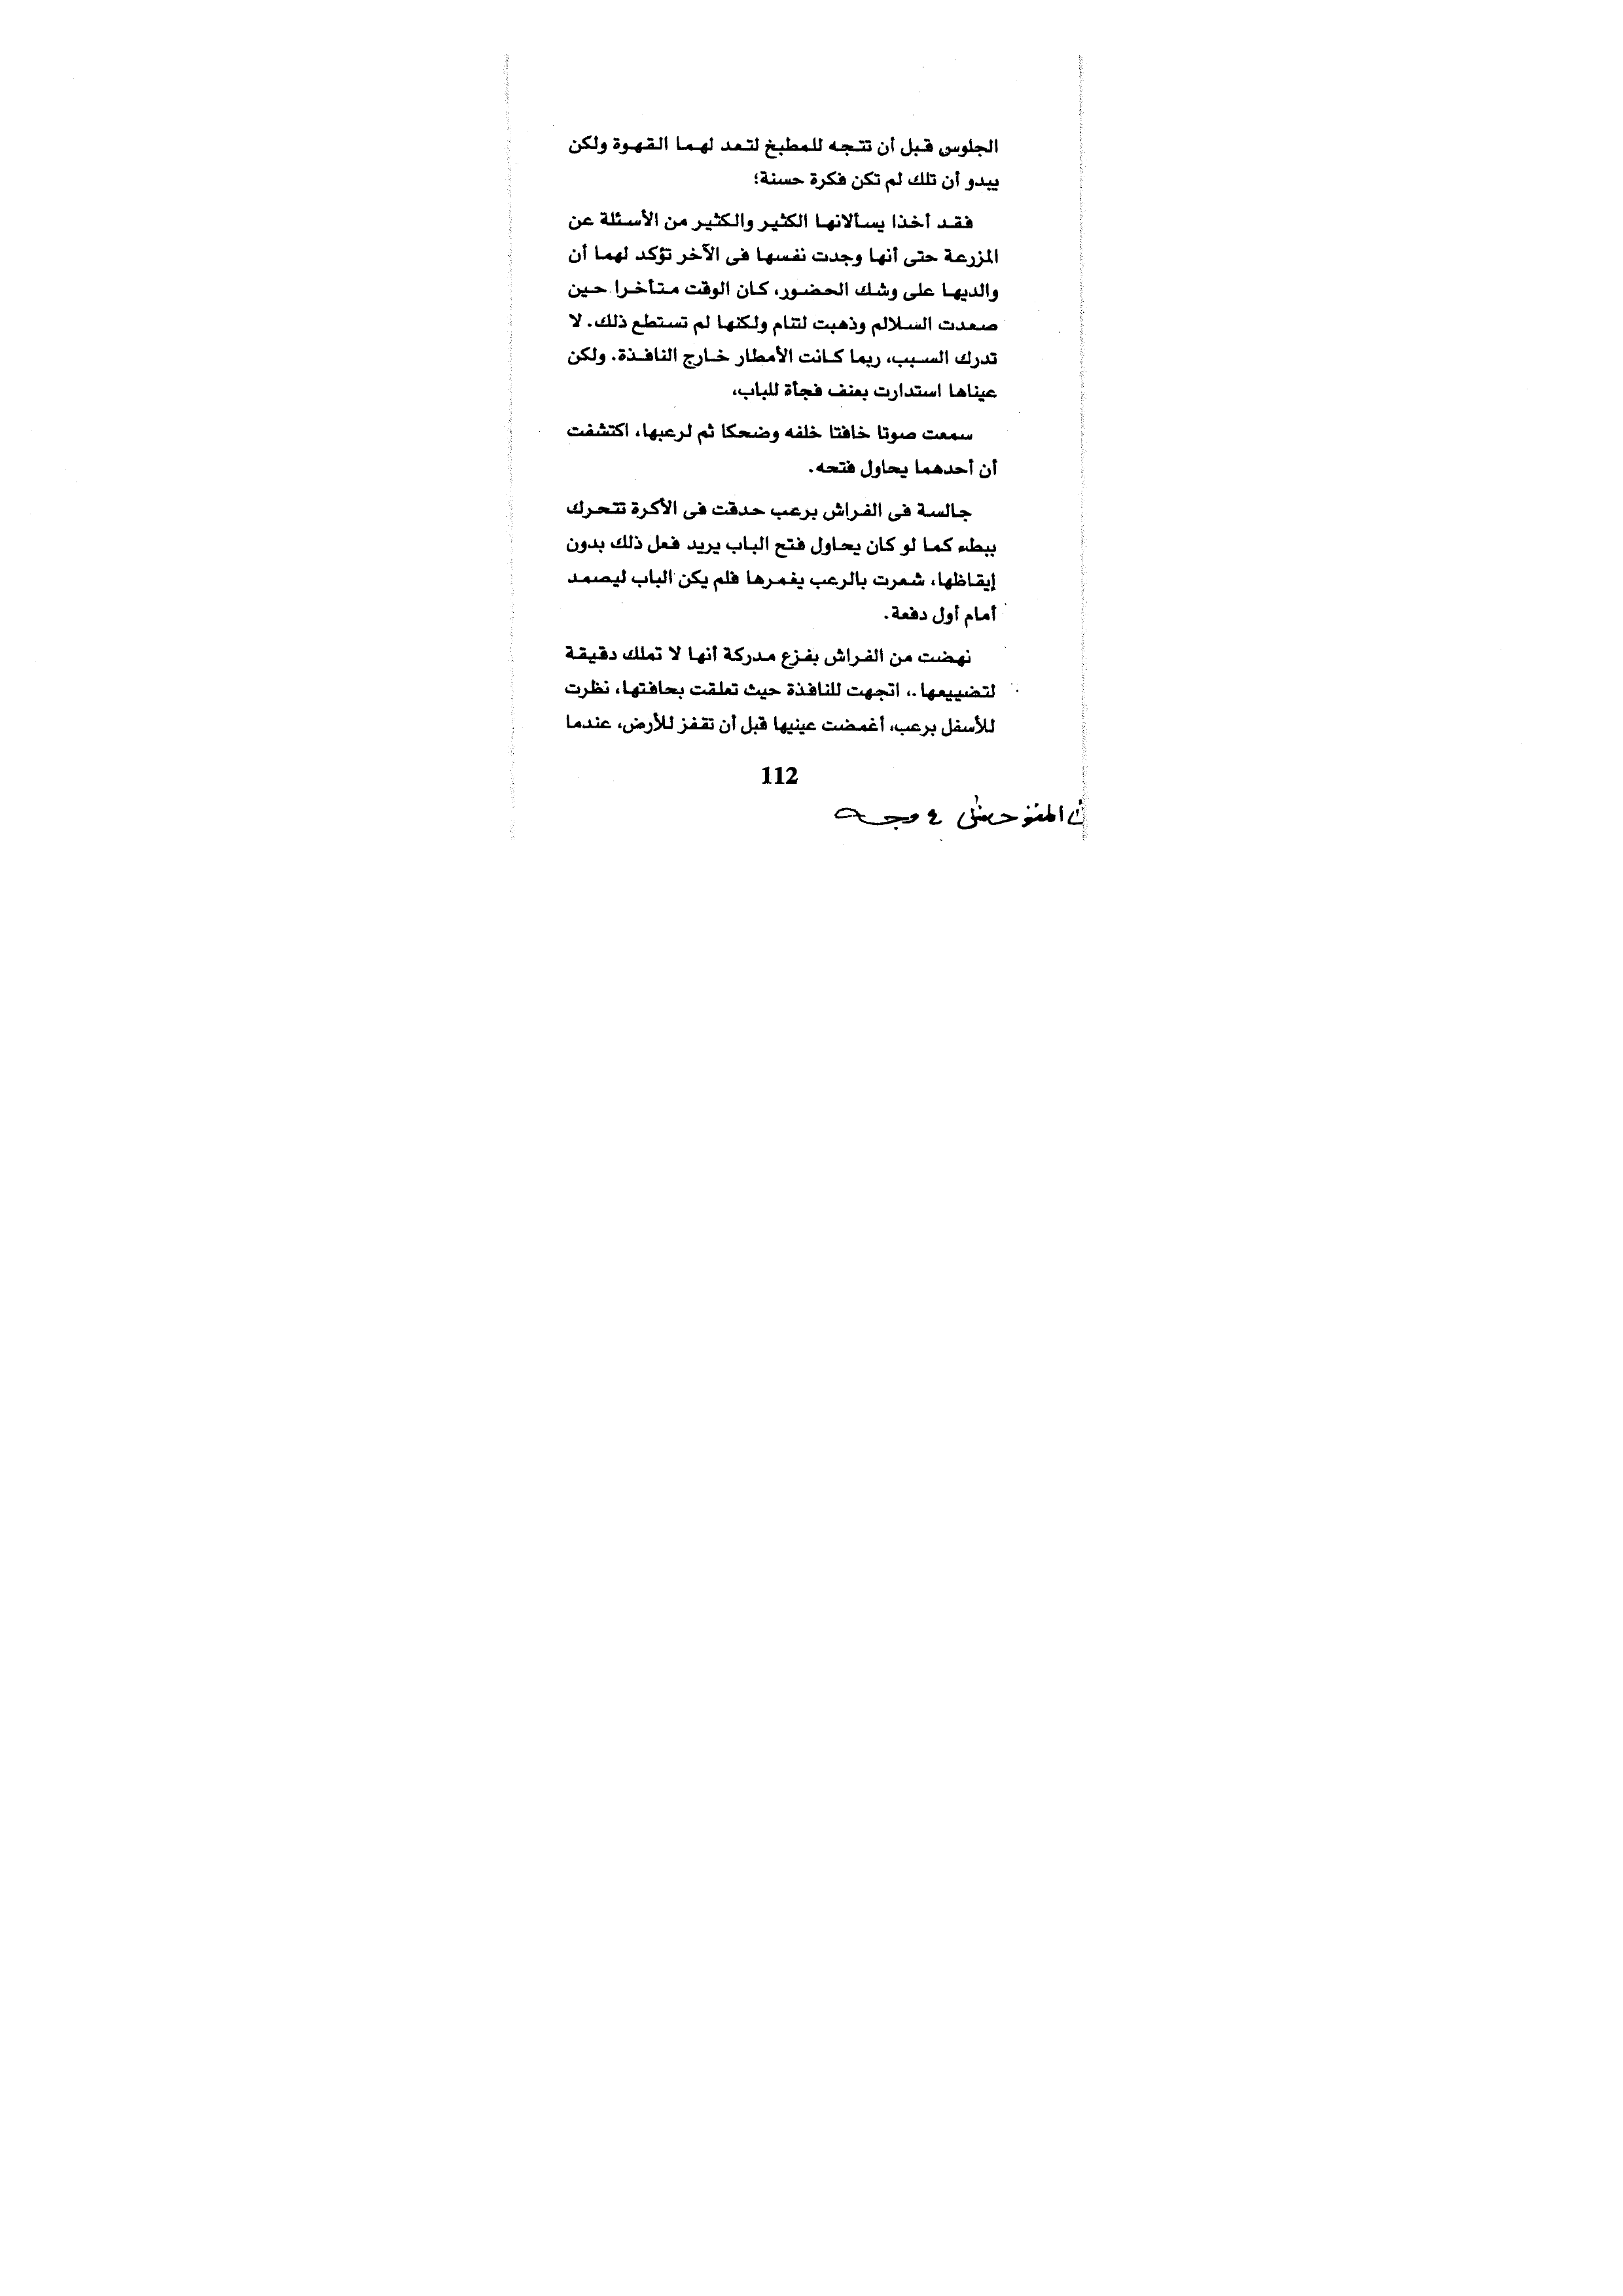 الجلوس قبل أن تتجه للمطبخ لتعد لهما القهوة ولكن
يبدو أن تلك لم تكن فكرة حسنة؛
فقد أخذا يسألانها الكثير والكثير من الأسئلة عن
المزرعة حتى أنها وجدت نفسها فى الآخر تؤكد لهما أن
والديها على وشك الحضور، كان الوقت متأخرا حين
صعدت السلالم وذهبت لتنام ولكنها لم تستطع ذلك. لا
تدرك السبب، ربما كانت الأمطار خارج النافذة. ولكن
عيناها استدارت بعنف فجأة للباب،
سمعت صوتا خافتا خلفه وضحكا ثم لرعبها، اكتشفت
أن أحدهما يحاول فتحه.
جالسة فى الفراش برعب حدقت فى الأكرة تتحرك
ببطء كما لو كان يحاول فتح الباب يريد فعل ذلك بدون
إيقاظها، شعرت بالرعب يغمرها فلم يكن الباب ليصمد
أمام أول دفعة.
نهضت من الفراش بفزع مدركة أنها لا تملك دقيقة
لتضييعها.، اتجهت للنافذة حيث تعلقت بحافتها، نظرت
للأسفل برعب، أغمضت عينيها قبل أن تقفز للأرض، عندما
112